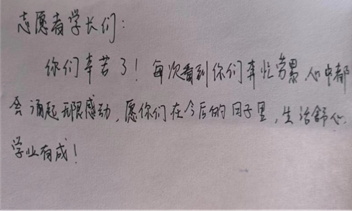 志愿者学长们：
你们辛苦了！每次看到你们奔忙劳累 心中都
会涌起无限感动，愿你们在今后的日子里，生活舒心
学业有成！